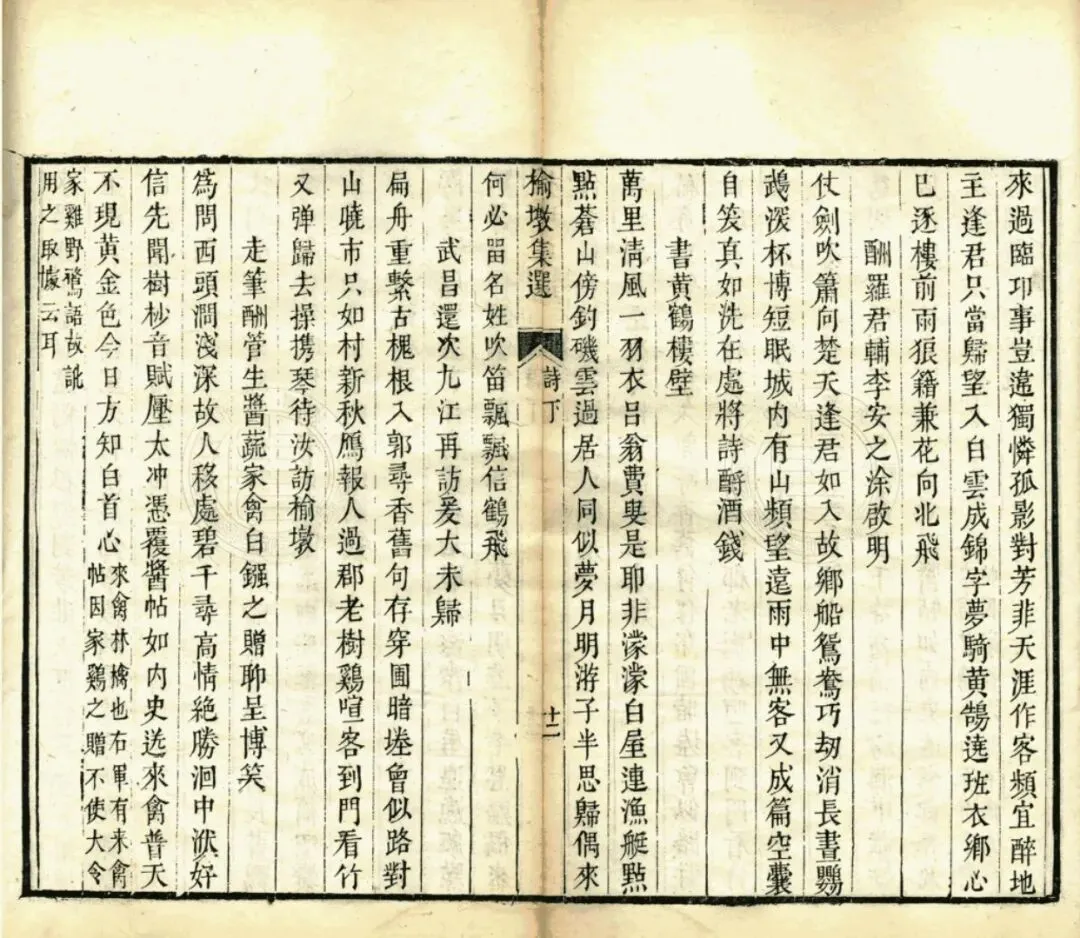 來過臨卭事豈違獨憐孤影對芳菲天涯作客頻宜醉地
主逢君只當歸望入白雲成錦字夢騎黃鵠遶班衣鄉心
已逐樓前雨狼籍兼花向北飛
酬羅君輔李安之涂啟明
仗劍吹簫向楚天逢君如入故鄉船鴛鴦巧刼消長晝鸚
鵡深杯博短眠城内有山頻望遠雨中無客又成篇空囊
自笑真如洗在處將詩酹酒錢
書黃鶴樓壁
萬里清風一羽衣吕翁費叟是耶非濛濛白屋連漁艇點
點蒼山傍釣磯雲過居人同似夢月明游子半思歸偶來
榆墩集選
詩下
十二
何必留名姓吹笛飄飄信鶴飛
武昌還次九江再訪爰大未歸
扁舟重繫古槐根入郭尋香舊句存穿圃暗塍曾似路對
山曉市只如村新秋鴈報人過郡老樹鷄喧客到門看竹
又弹歸去操携琴待汝訪榆墩
走筆酬管生醬蔬家禽白鏹之贈聊呈博笑
爲問西頭澗淺深故人移處碧千尋高情絶勝洄中洑好
信先聞樹杪音賦壓太冲憑覆醬帖如内史送來禽普天
不現黄金色今日方知白首心
來禽林檎也右軍有来禽
帖因家鷄之贈不使大令
家雞野鶩語故訛
用之取據云耳